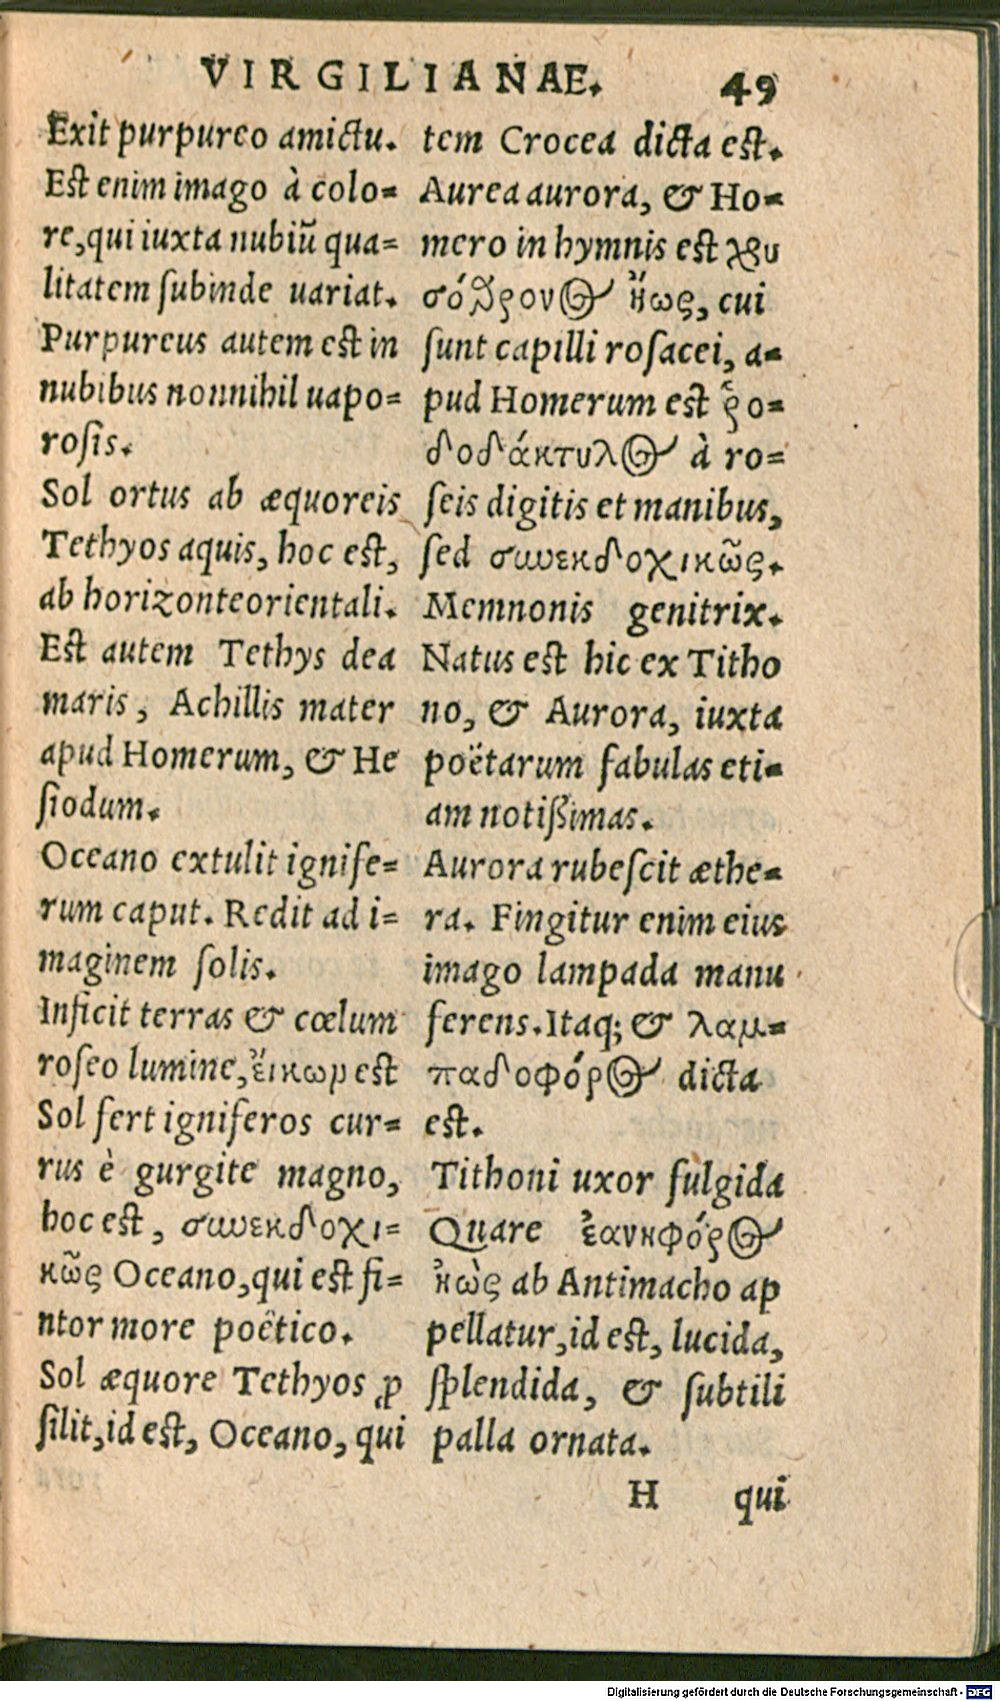 VIRGILIANAE. 49
Exit purpureo amictu.
Est enim imago à colo=
re,qui iuxta nubiũ qua=
litatem subinde uariat.
Purpureus autem est in
nubibus nonnihil uapo=
rosis.
Sol ortus ab æquoreis
Tethyos aquis, hoc est,
ab horizonte orientali.
Est autem Tethys dea
maris, Achillis mater
apud Homerum, & He
siodum.
Oceano extulit ignife=
rum caput. Redit ad i=
maginem solis.
Inficit terras & cœlum
roseo lumine, est
Sol fert igniferos cur=
rus è gurgite magno,
hoc est, συνεκδοχι-
κῶς Oceano,qui est fi=
nitor more poëtico.
Sol æquore Tethyos ꝓ
silit,id est, Oceano, qui
tem Crocea dicta est.
Aurea aurora, & Ho=
mero in hymnis est χρυ
σόθρονος ἠὼς, cui
sunt capilli rosacei, a=
pud Homerum est ῥο=
δοδάκτυλος à ro=
seis digitis et manibus,
sed συνεκδοχικῶς.
Memnonis genitrix.
Natus est hic ex Titho
no, & Aurora, iuxta
poëtarum fabulas eti=
am notißimas.
Aurora rubescit æthe=
ra. Fingitur enim eius
imago lampada manu
ferens.Itaq; & λαμ=
παδοφόρος dicta
est.
Tithoni uxor fulgida
Quare ἑανηφόρος
ἠὼς ab Antimacho ap
pellatur,id est, lucida,
splendida, & subtili
palla ornata.
H qui
Digitalisierung gefördert durch die Deutsche Forschungsgemeinschaft - DFG